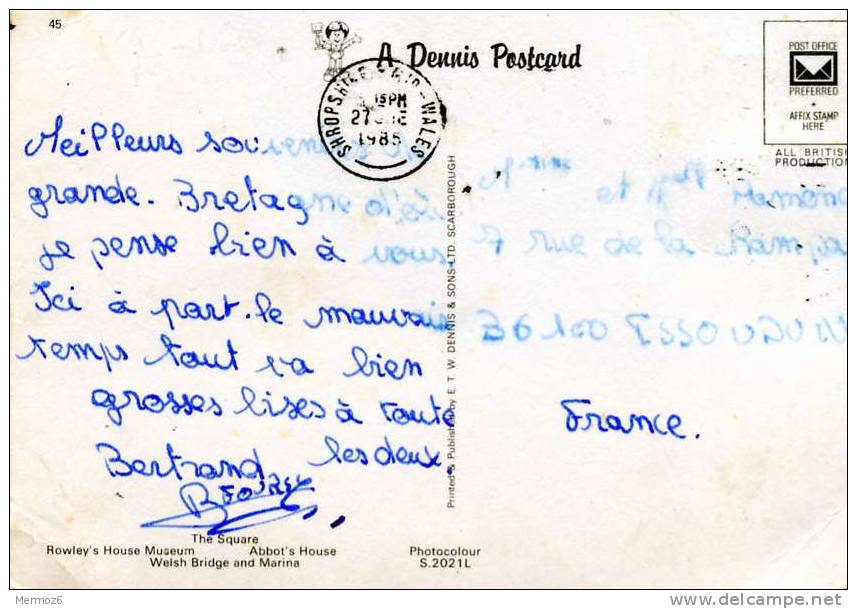 45
A Dennis Postcard
POST OFFICE
PREFERRED
AFFIX STAMP
HERE
ALL BRITISH
PRODUCTION
SHROPSHIRE - WALES
PM
27
1985
Meilleurs souvenirs de
grande. Bretagne d'où
je pense bien à vous.
Ici à part. le mauvais
temps tout va bien
grosses bises à toute
les deux.
Bertrand
et
7 rue de la
36100 ISSOUDUN
France.
Printed & Published by E. T. W. DENNIS & SONS LTD. SCARBOROUGH
The Square
Rowley's House Museum Abbot's House
Welsh Bridge and Marina
Photocolour
S.2021L
Mermoz6
delcampe.net